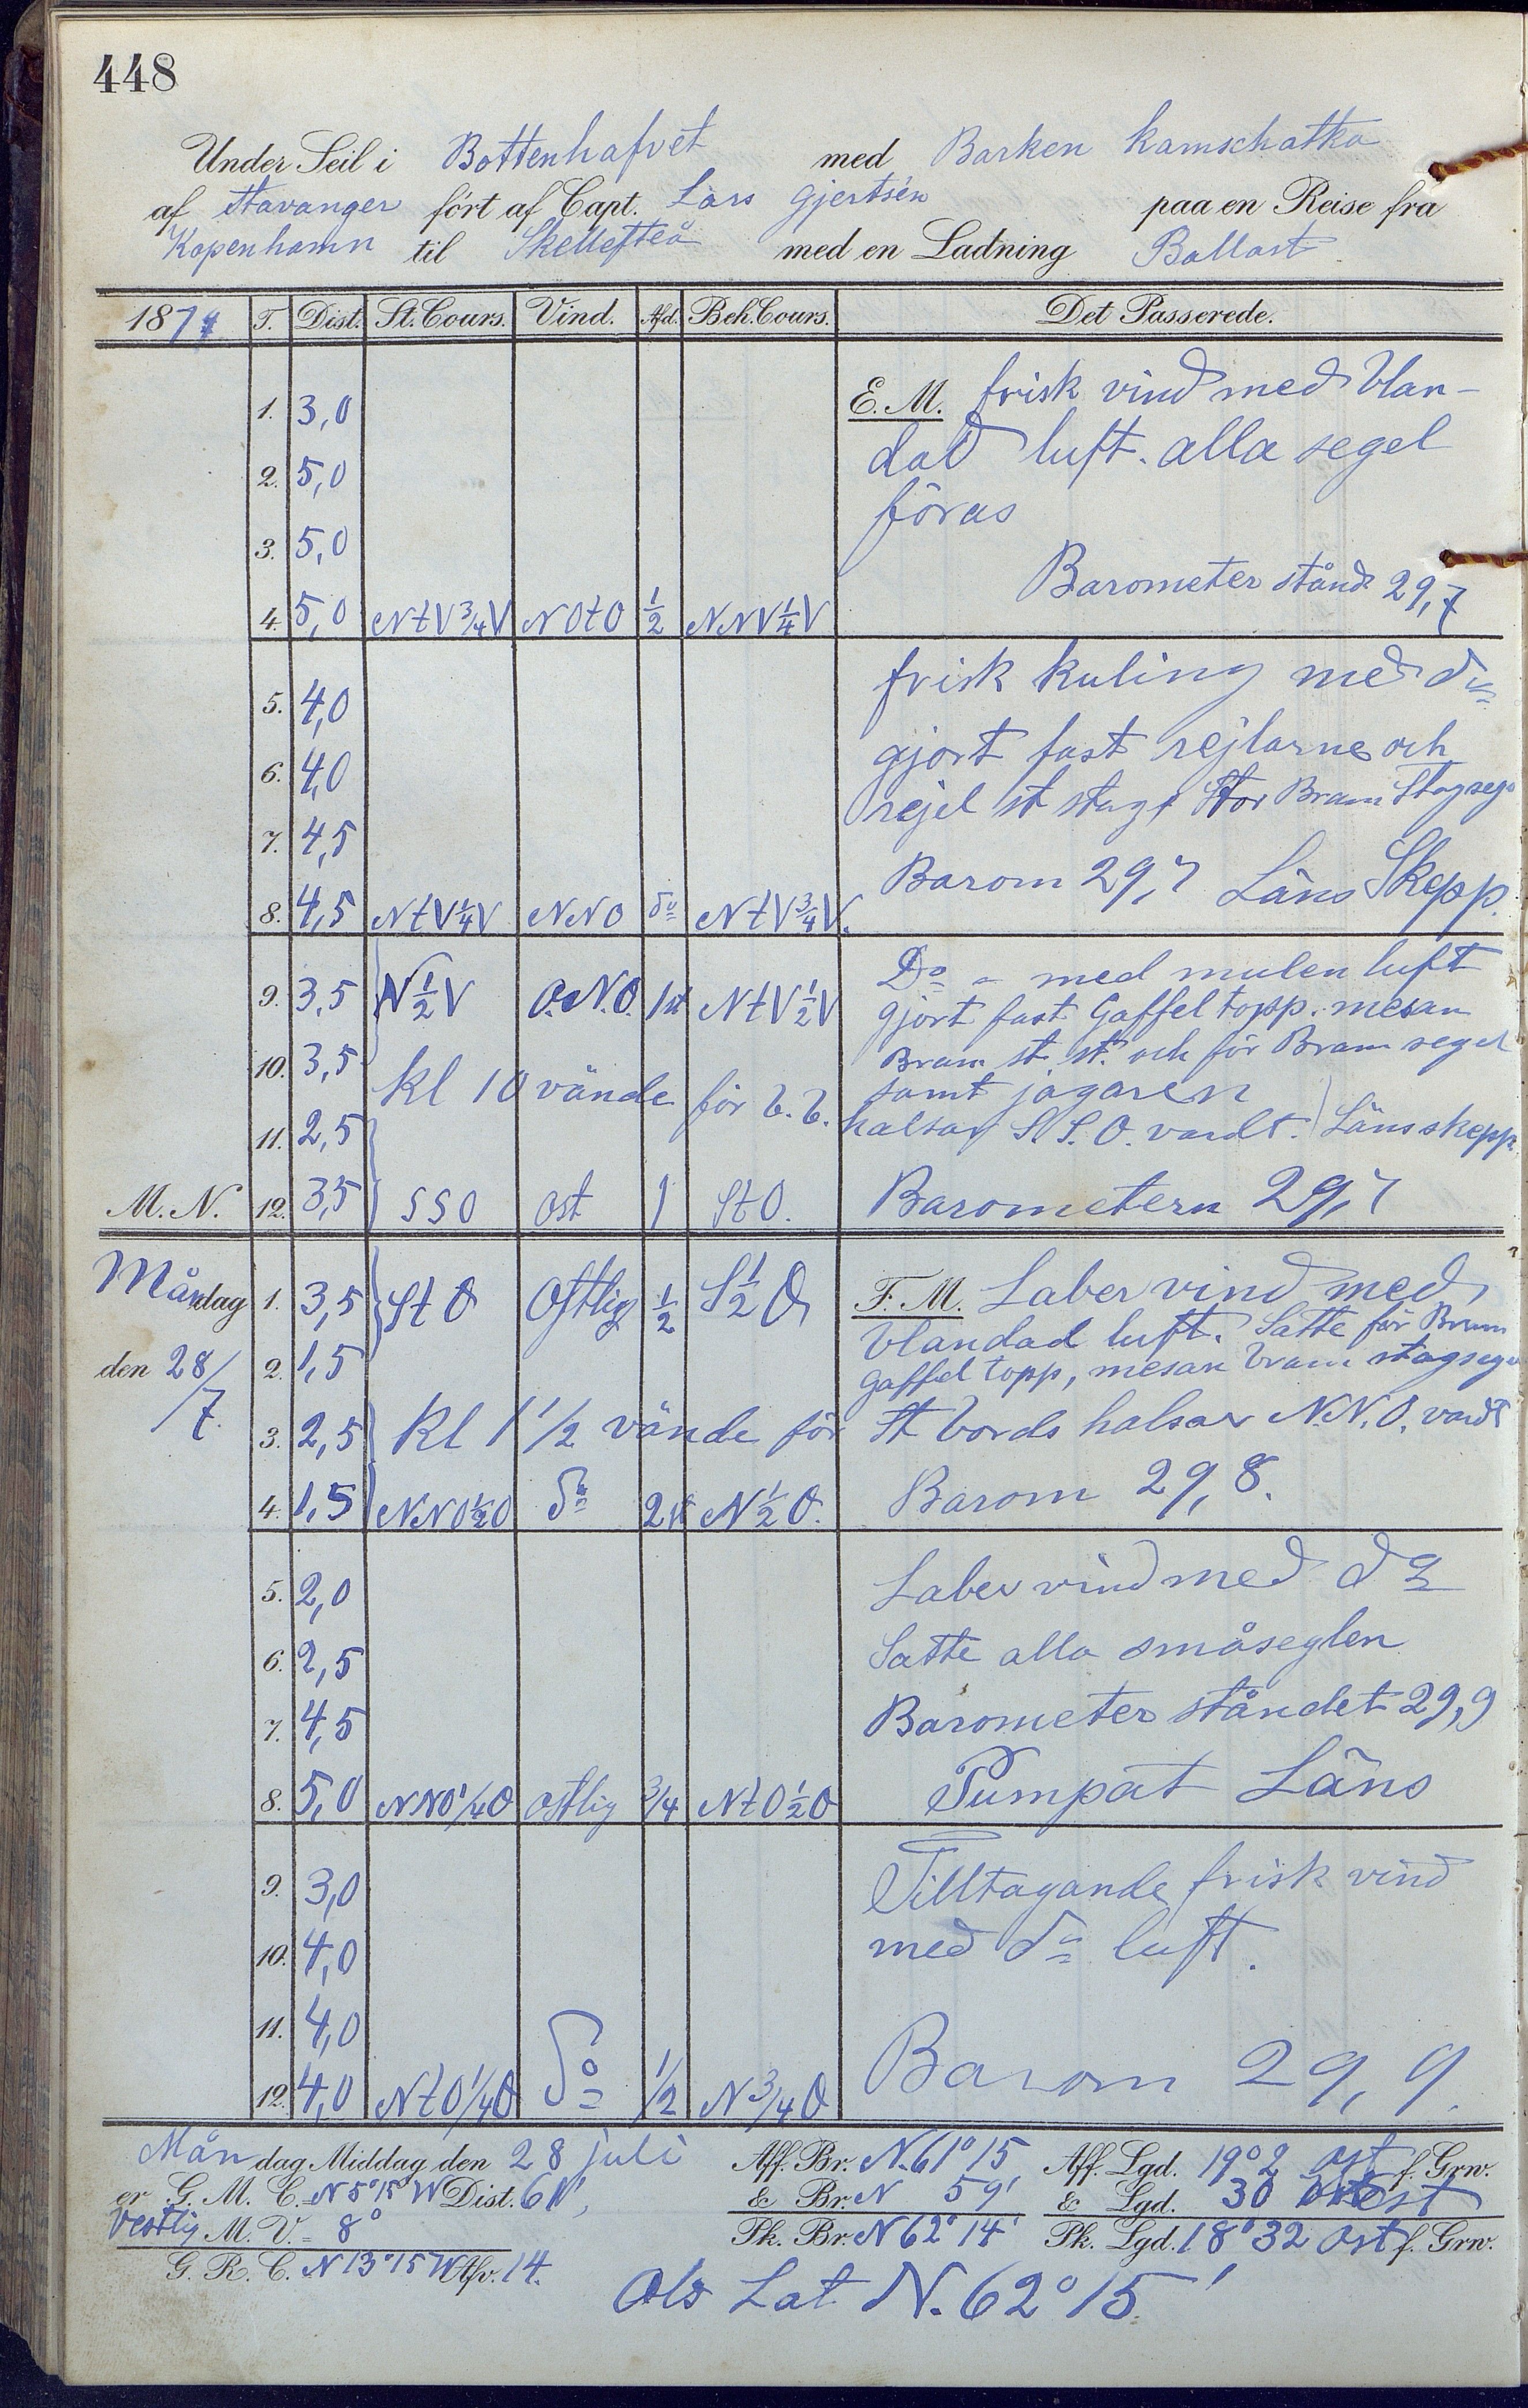 448
Under Seil i Bottenhafvet med Barken Kamschatka
af Stavanger fört af Capt. Lars Gjertsén paa en Reise fra
Kopenhamn til Skellefteå med en Ladning Ballast
1874 T. Dist. St. Cours. Vind. Afd. Beh. Cours. Det Passerede.
1. 3,0 E. M. frisk vind med blan-
2. 5,0 dad luft. alla segel
3. 5,0 föras
Barometer stånd 29,7
4. 5,0 NtV 3/4 V NOtO 1/2 NNV 1/4 V
5. 4,0 frisk kuling med do
6. 4,0 gjort fast rejlarne och
rejel st stag Stor Bram Stagseg
7. 4,5
Barom 29,7 Läns Skepp.
8. 4,5 NtV 1/4 V NNO do NtV 3/4 V.
Do - med mulen luft
9. 3,5 N 1/2 V O.N.O. 1st NtV 1/2 V gjort fast Gaffel topp. mesan
10. 3,5 Bram st. st. och för Bram segel
samt jagaren
Kl 10 vände för b.b. halsar S S.O. vardt. Läns skepp.
11. 2,5
M. N. 12. 3,5 SSO Ost 1 StO. Barometern 29,7
Måndag 1. 3,5 StO Ostlig 1/2 S 1/2 O F. M. Laber vind med
blandad luft. Satte för Bram
den 28/7. 2. 1,5 Gaffel topp, mesan bram stagseg
3. 2,5 Kl 1 1/2 vände för St bords halsar N.N.O. vardt
4. 1,5 NNO 1/2 O do 2st N 1/2 O. Barom 29,8.
5. 2,0 Laber vind med do
6. 2,5 Satte alla småseglen
7. 4,5 Barometer ståndet 29,9
8. 5,0 NNO 1/4 O ostlig 3/4 NtO 1/2 O Pumpat Läns
9. 3,0 Tilltagande frisk vind
10. 4,0 med do luft.
11. 4,0
12. 4,0 NtO 1/4 O do 1/2 N 3/4 O Barom 29,9.
Måndag Middag den 28 juli Aff. Br. N. 61° 15 Aff. Lgd. 19° 2 ost f. Grw.
er G. M. C. N 5° 15' W Dist. 61', & Br. N 59' & Lgd. 30 West
Vestlig M. V. = 8° Pk. Br. N 62° 14' Pk. Lgd. 18° 32 Ost f. Grw.
G. R. C. N 13° 15 W Afv. 14.
Obs Lat N. 62° 15'